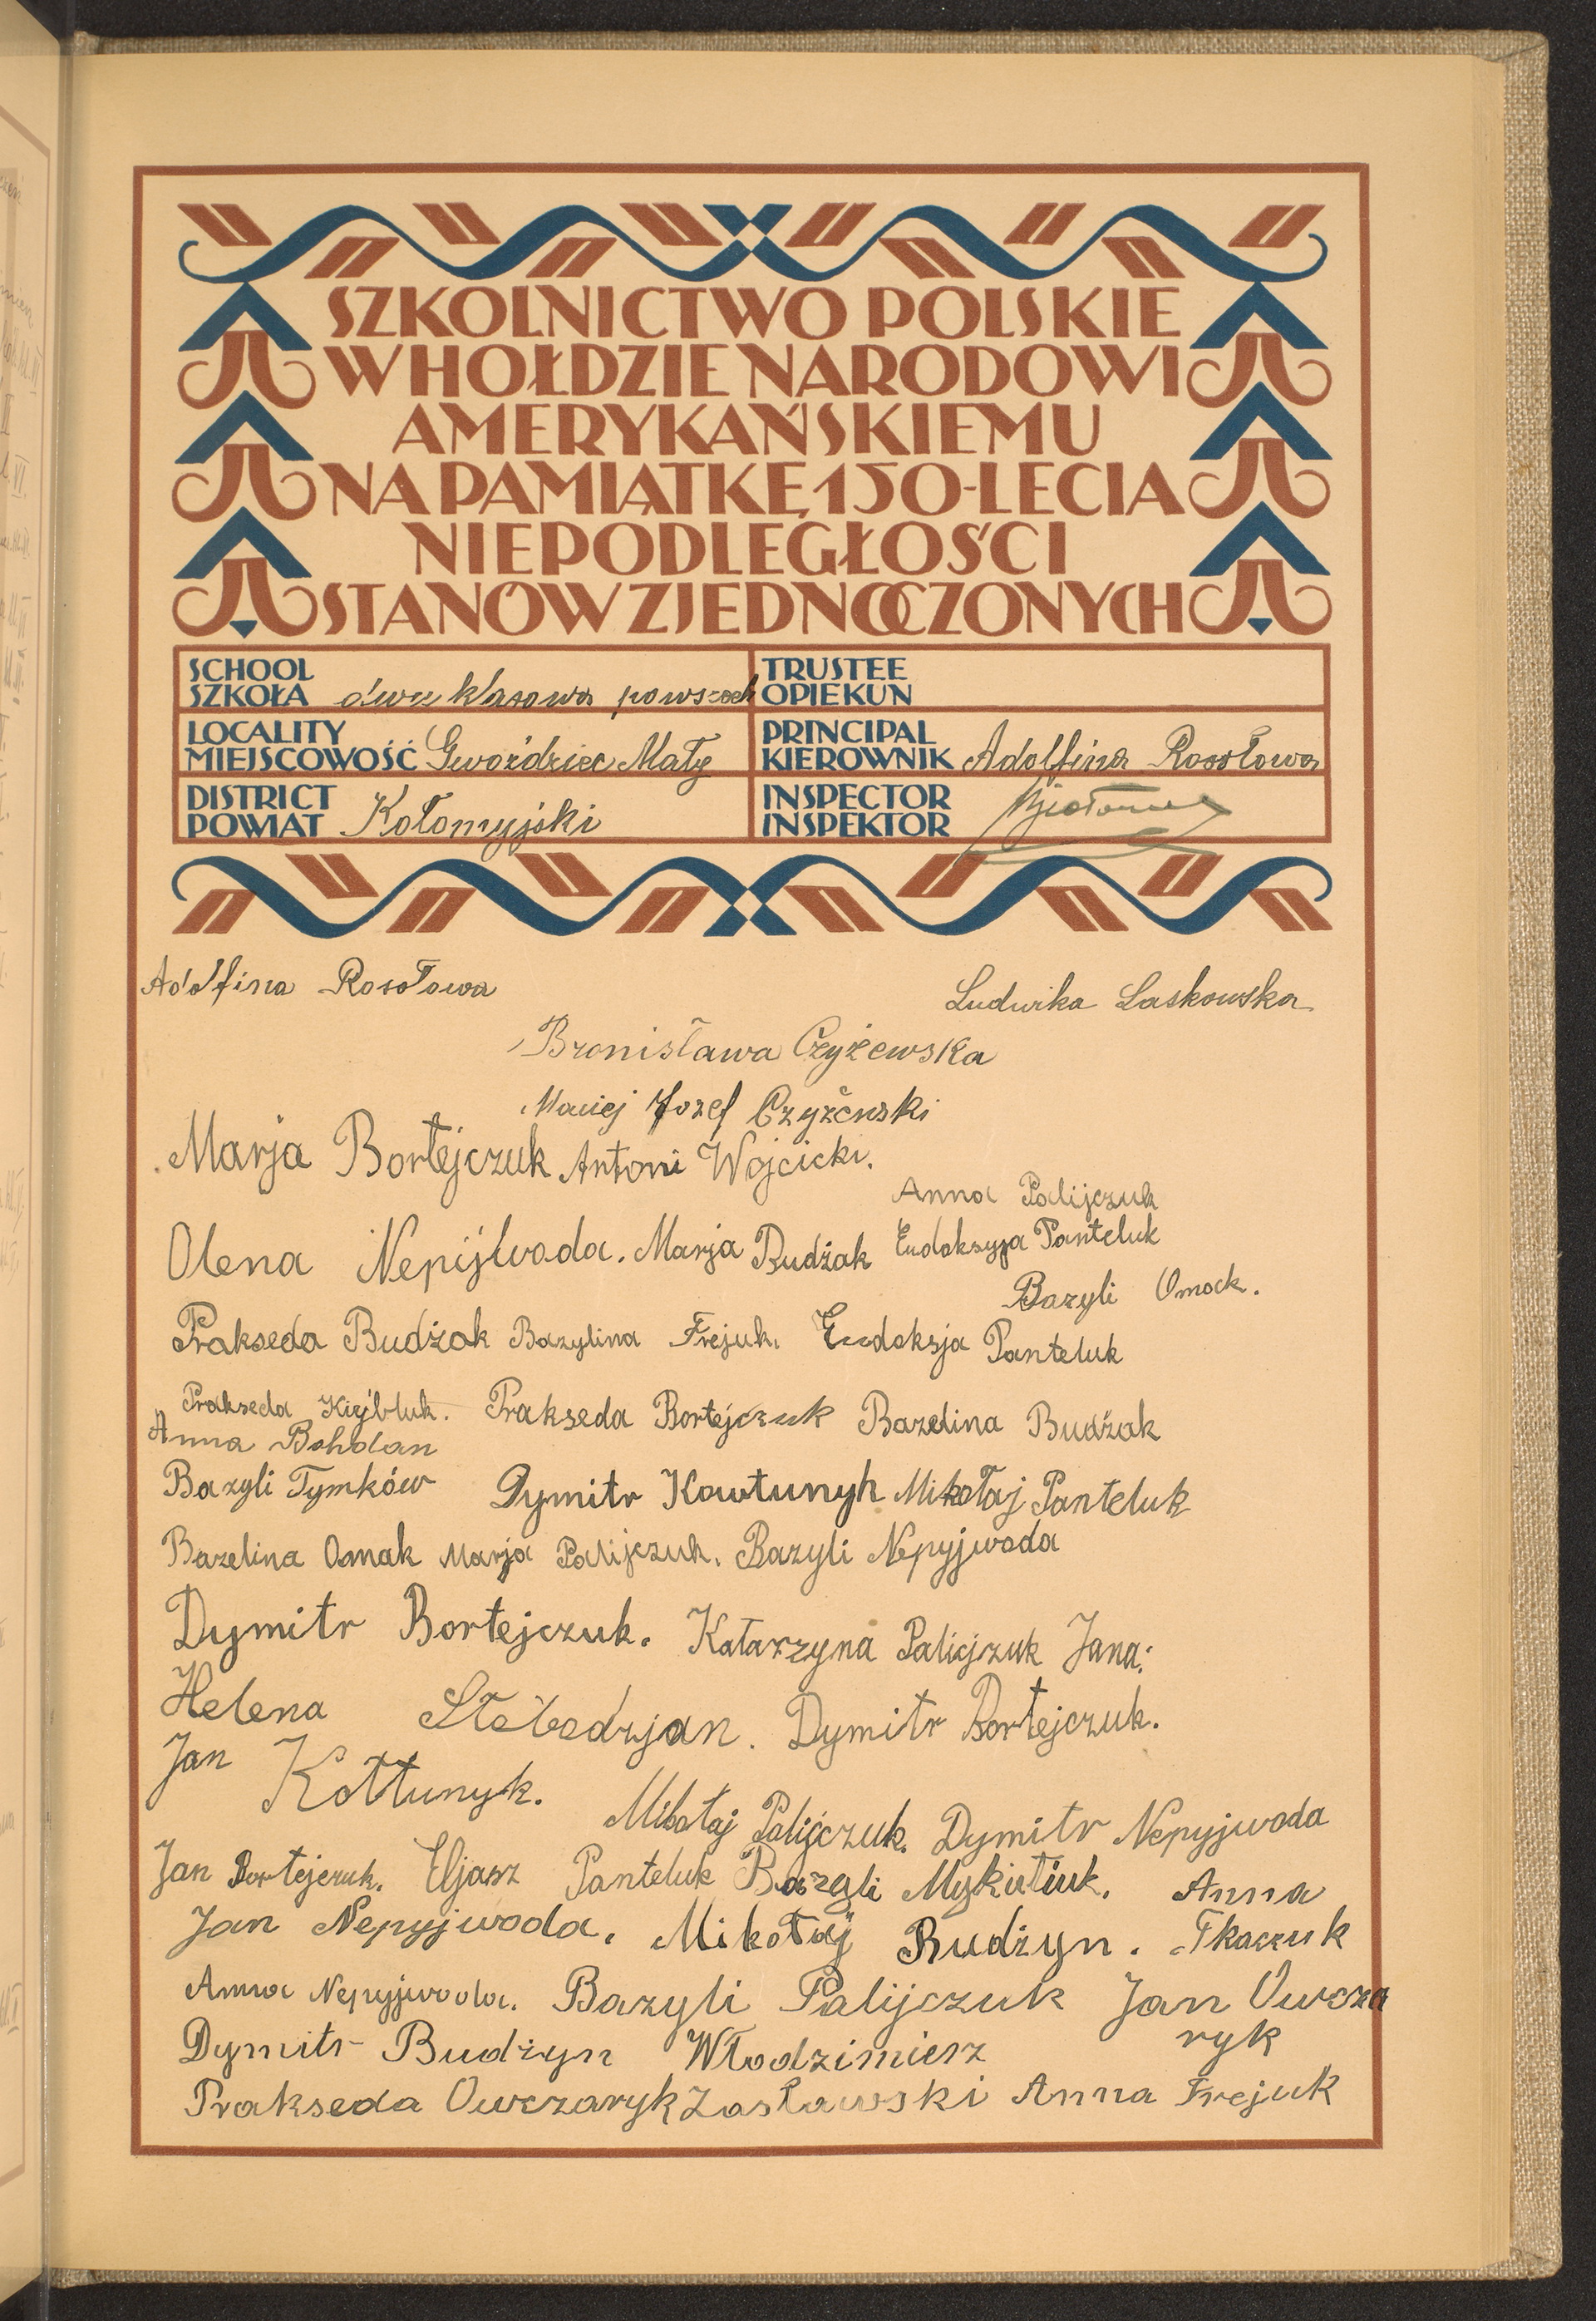 SZKOLNICTWO POLSKIE
W HOŁDZIE NARODOWI
AMERYKAŃSKIEMU
NA PAMIĄTKĘ 150-LECIA
NIEPODLEGŁOŚCI
STANÓW ZJEDNOCZONYCH
SCHOOL
SZKOŁA dwu klasowa powszech
TRUSTEE
OPIEKUN
LOCALITY
MIEJSCOWOŚĆ Gwoździec Mały
PRINCIPAL
KIEROWNIK Adolfina Rosołowa
DISTRICT
POWIAT Kołomyjski
INSPECTOR
INSPEKTOR
Adolfina Rosołowa
Ludwika Laskowska
Bronisława Czyżewska
Maciej Jozef Czyżewski
Marja Bortejczuk Antoni Wojcicki.
Anna Palijczuk
Olena Nepijwoda. Marja Budżak Eudoksyja Panteluk
Bazyli Omock.
Prakseda Budżak Bazylina Frejuk. Eudoksja Panteluk
Prakseda Prakseda Bortejczuk Bazelina Budżak
Anna Bohdan
Bazyli Tymków Dymitr Kowtunyk Mikołaj Panteluk
Bazelina Osmak Marja Palijczuk. Bazyli Nepyjwoda
Dymitr Bortejczuk. Katarzyna Palijczuk Jana.
Helena Słobodzjan. Dymitr Bortejczuk.
Jan Kołtunyk.
Mikołaj Palijczuk. Dymitr Nepyjwoda
Jan Bortejczuk. Eljasz Panteluk Bazyli Mykietiuk. Anna
Jan Nepyjwoda. Mikołaj Budżyn. Tkaczuk
Anna Nepyjwoda. Bazyli Palijczuk Jan Owcza
Dymitr Budżyn Włodzimierz ryk
Prakseda Owczaryk Zasławski Anna Frejuk